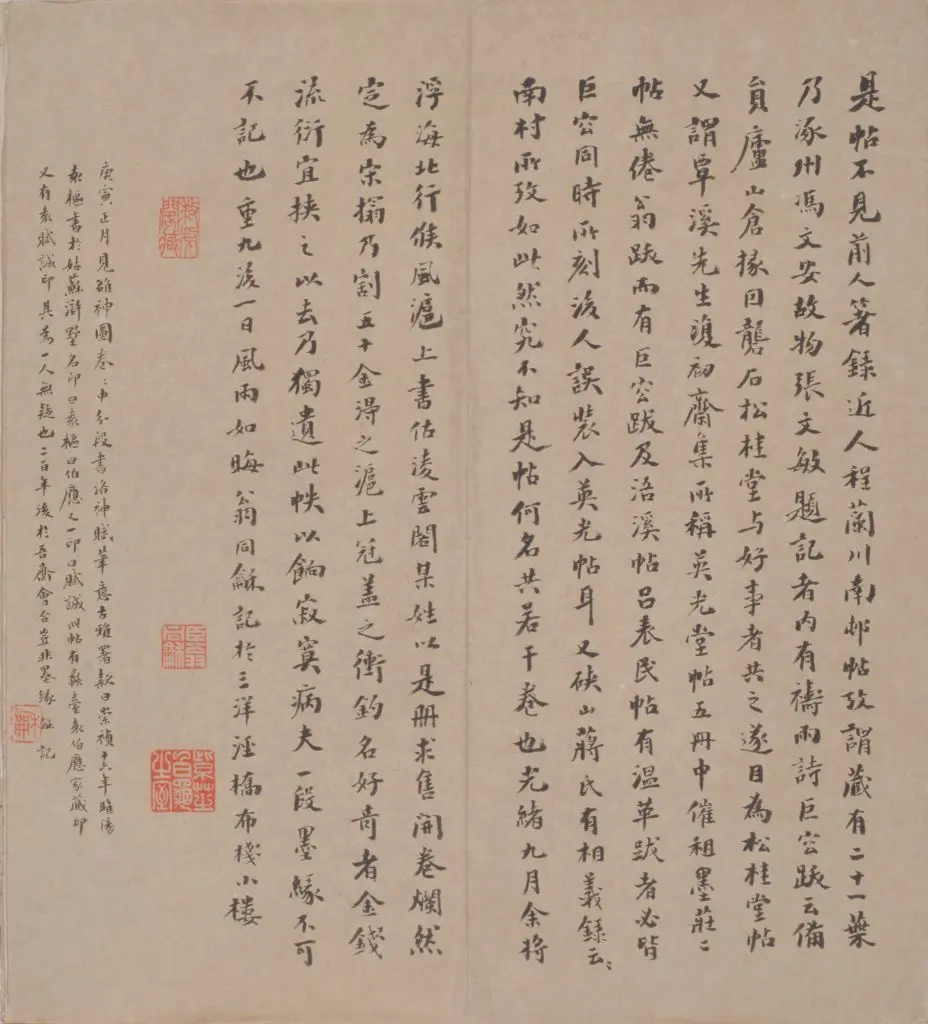 是帖不見前人著錄近人程蘭川南邨帖攷謂藏有二十一葉
乃涿州馮文安故物張文敏題記者內有禱雨詩巨容跋云備
員廬山倉掾回礱石松桂堂与好事者共之遂目為松桂堂帖
又謂覃溪先生復初齋集所稱英光堂帖五冊中催租墨莊二
帖無倦翁跋而有巨容跋及浯溪帖呂表民帖有溫革跋者必皆
巨容同時所刻後人誤裝入英光帖耳又硤山蔣氏有相義錄云〻
南村所攷如此然究不知是帖何名共若干卷也光緒九月余將
浮海北行候風滬上書估淩雲閣某姓以是冊求售開卷爛然
定為宋搨乃割五十金得之滬上冠蓋之衝釣名好奇者金錢
流衍宜挾之以去乃獨遺此帙以餉寂寞病夫一段墨緣不可
不記也重九後一日風雨如晦翁同龢記於三洋涇橋布棧小樓
紫芝白龜之室
庚寅正月見雒神圖卷〻中分段書洛神賦筆意古雅署款曰崇禎十六年睢陽
袁樞書於姑蘇滸墅名印曰袁樞曰伯應又一印曰賦誠此帖有蠡臺袁伯應家藏印
又有袁賦誠印其為一人無疑也二百年後於吾齋會合豈非墨緣 龢記